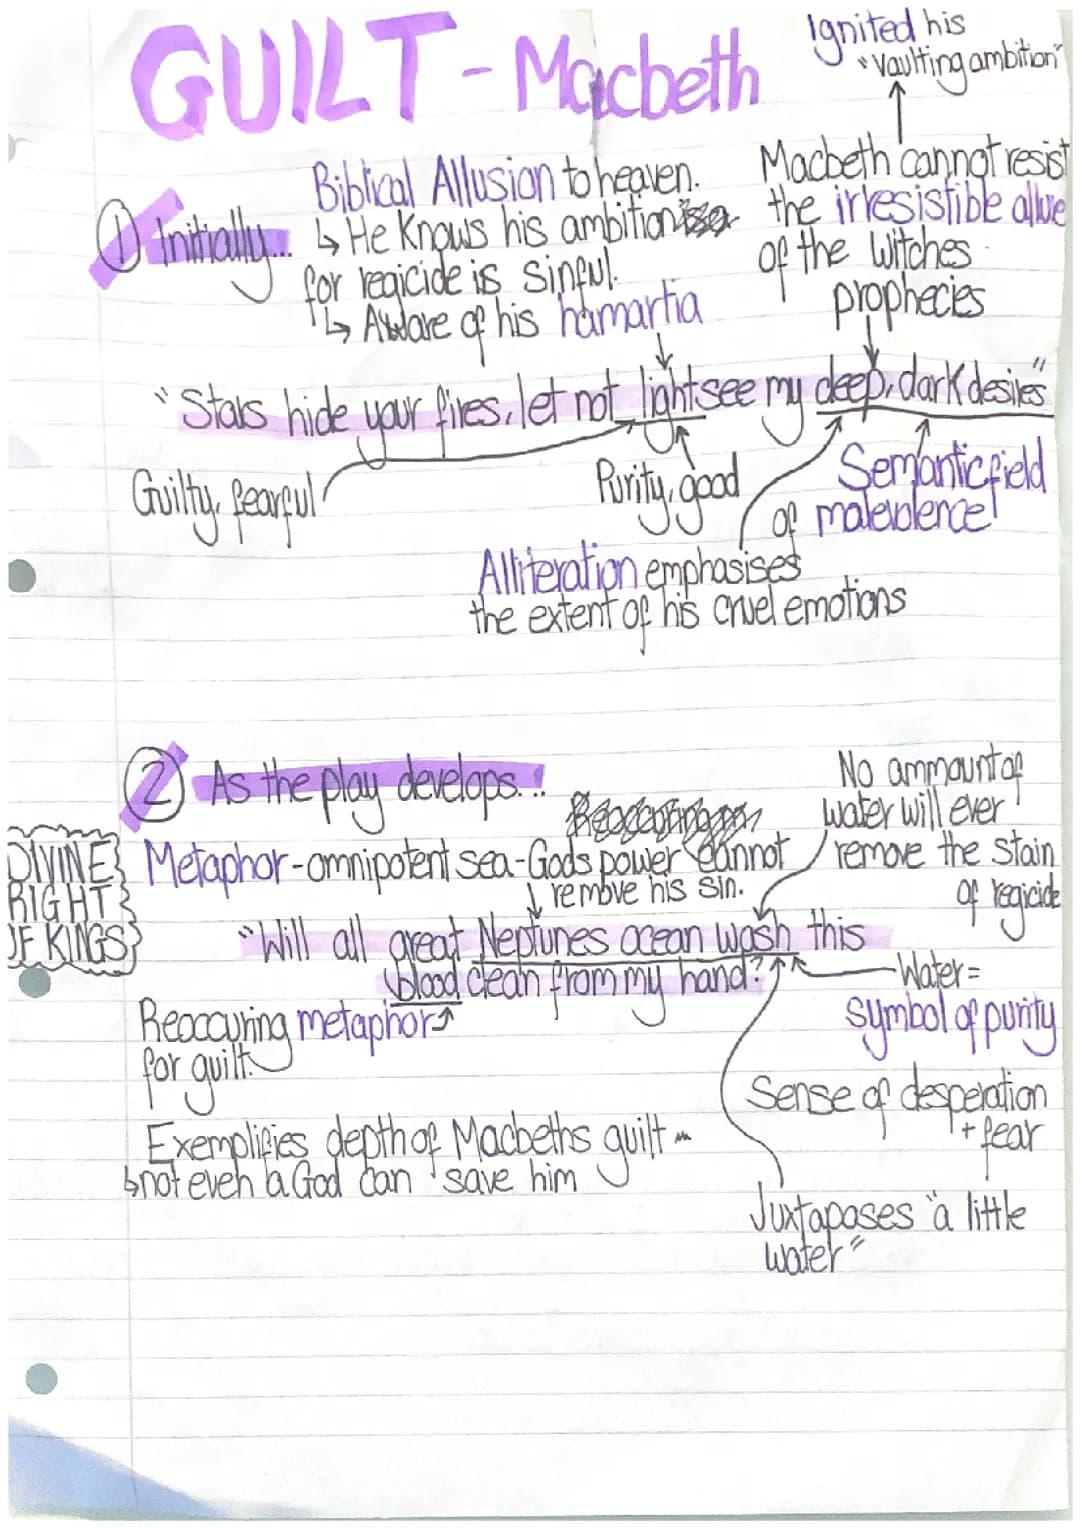 GUILT - Macbeth
Ignited his
"vaulting ambition"
Macbeth cannot resist
the irresistible allure
of the witches
prophecies
① Initially...
Biblical Allusion to heaven.
↳ He knows his ambition
for regicide is sinful.
↳ Aware of his hamartia
"Stars hide your fires, let not light see my deep, dark desires"
Guilty, fearful
Purity, good
Semantic field
of malevolence
Alliteration emphasises
the extent of his cruel emotions
② As the play develops...
No ammount of
water will ever
remove the stain
of regicide
DIVINE
RIGHT
OF KINGS
Metaphor - omnipotent sea - Gods power cannot
remove his sin.
"Will all great Neptunes ocean wash this
blood clean from my hand?"
Water =
symbol of purity
Reoccuring metaphor
for guilt.
Sense of desperation
+ fear
Exemplifies depth of Macbeths guilt
↳ not even a God can save him
Juxtaposes "a little
water"